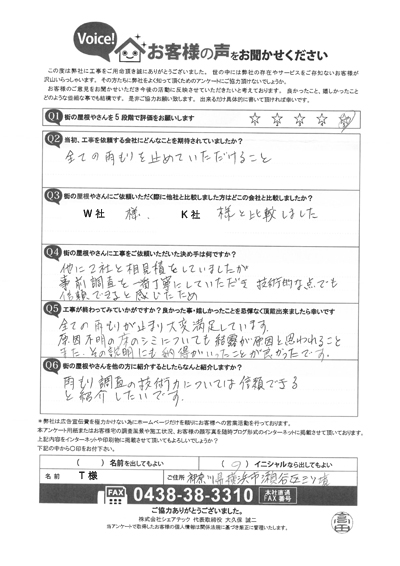 Voice! お客様の声をお聞かせください
この度は弊社に工事をご用命頂き誠にありがとうございました。世の中には弊社の存在やサービスをご存知ないお客様が
沢山いらっしゃいます。その方たちに弊社をよく知って頂くためのアンケートにご協力頂けないでしょうか。
お客様のご意見をお聞かせいただき今後の活動に反映させていただきたいと考えております。良かったこと、嬉しかったこと
どのような些細な事でも結構です。是非ご協力お願い致します。出来るだけ具体的に書いて頂ければ幸いです。
Q1 街の屋根やさんを5段階で評価をお願いします ☆ ☆ ☆ ☆ ☆
Q2 当初、工事を依頼する会社にどんなことを期待されていましたか?
全ての雨もりを止めていただけること
Q3 街の屋根やさんにご依頼いただく際に他社と比較しました方はどこの会社と比較しましたか?
W社 様、 K社 様と比較しました
Q4 街の屋根やさんに工事をご依頼いただいた決め手は何ですか?
他に2社と相見積をしていましたが
事前調査を一番丁寧にしていただき 技術的な点でも
信頼できると感じたため
Q5 工事が終わってみていかがですか?良かった事・嬉しかったことを忌憚なく頂戴出来ましたら幸いです
全ての雨もりが止まり大変満足しています。
原因不明の床のシミについても結露が原因と思われること
また、その説明にも納得がいったことが良かったです。
Q6 街の屋根やさんを他の方に紹介するとしたらなんと紹介しますか?
雨もり調査の技術力については信頼できる
と紹介したいです。
*弊社は広告宣伝費を極力かけない為にホームページだけを頼りにお客様への営業活動を行っております。
本アンケート用紙またはお客様宅の調査風景や施工状況、お客様の顔写真を随時ブログ形式のインターネットに掲載させて頂いております。
上記内容をインターネットや印刷物に掲載させて頂いてもよろしいでしょうか?
下記の中から○印をお付下さい。
( ) 名前を出してもよい ( ○ ) イニシャルなら出してもよい
名前 T様 ご住所 神奈川県横浜市瀬谷区三ツ境
FAX 0438-38-3310 本社直通 FAX番号
ご協力ありがとうございました。
株式会社シェアテック 代表取締役 大久保 誠二
当アンケートで取得したお客様の個人情報は関係法規に基づき厳正に管理いたします。